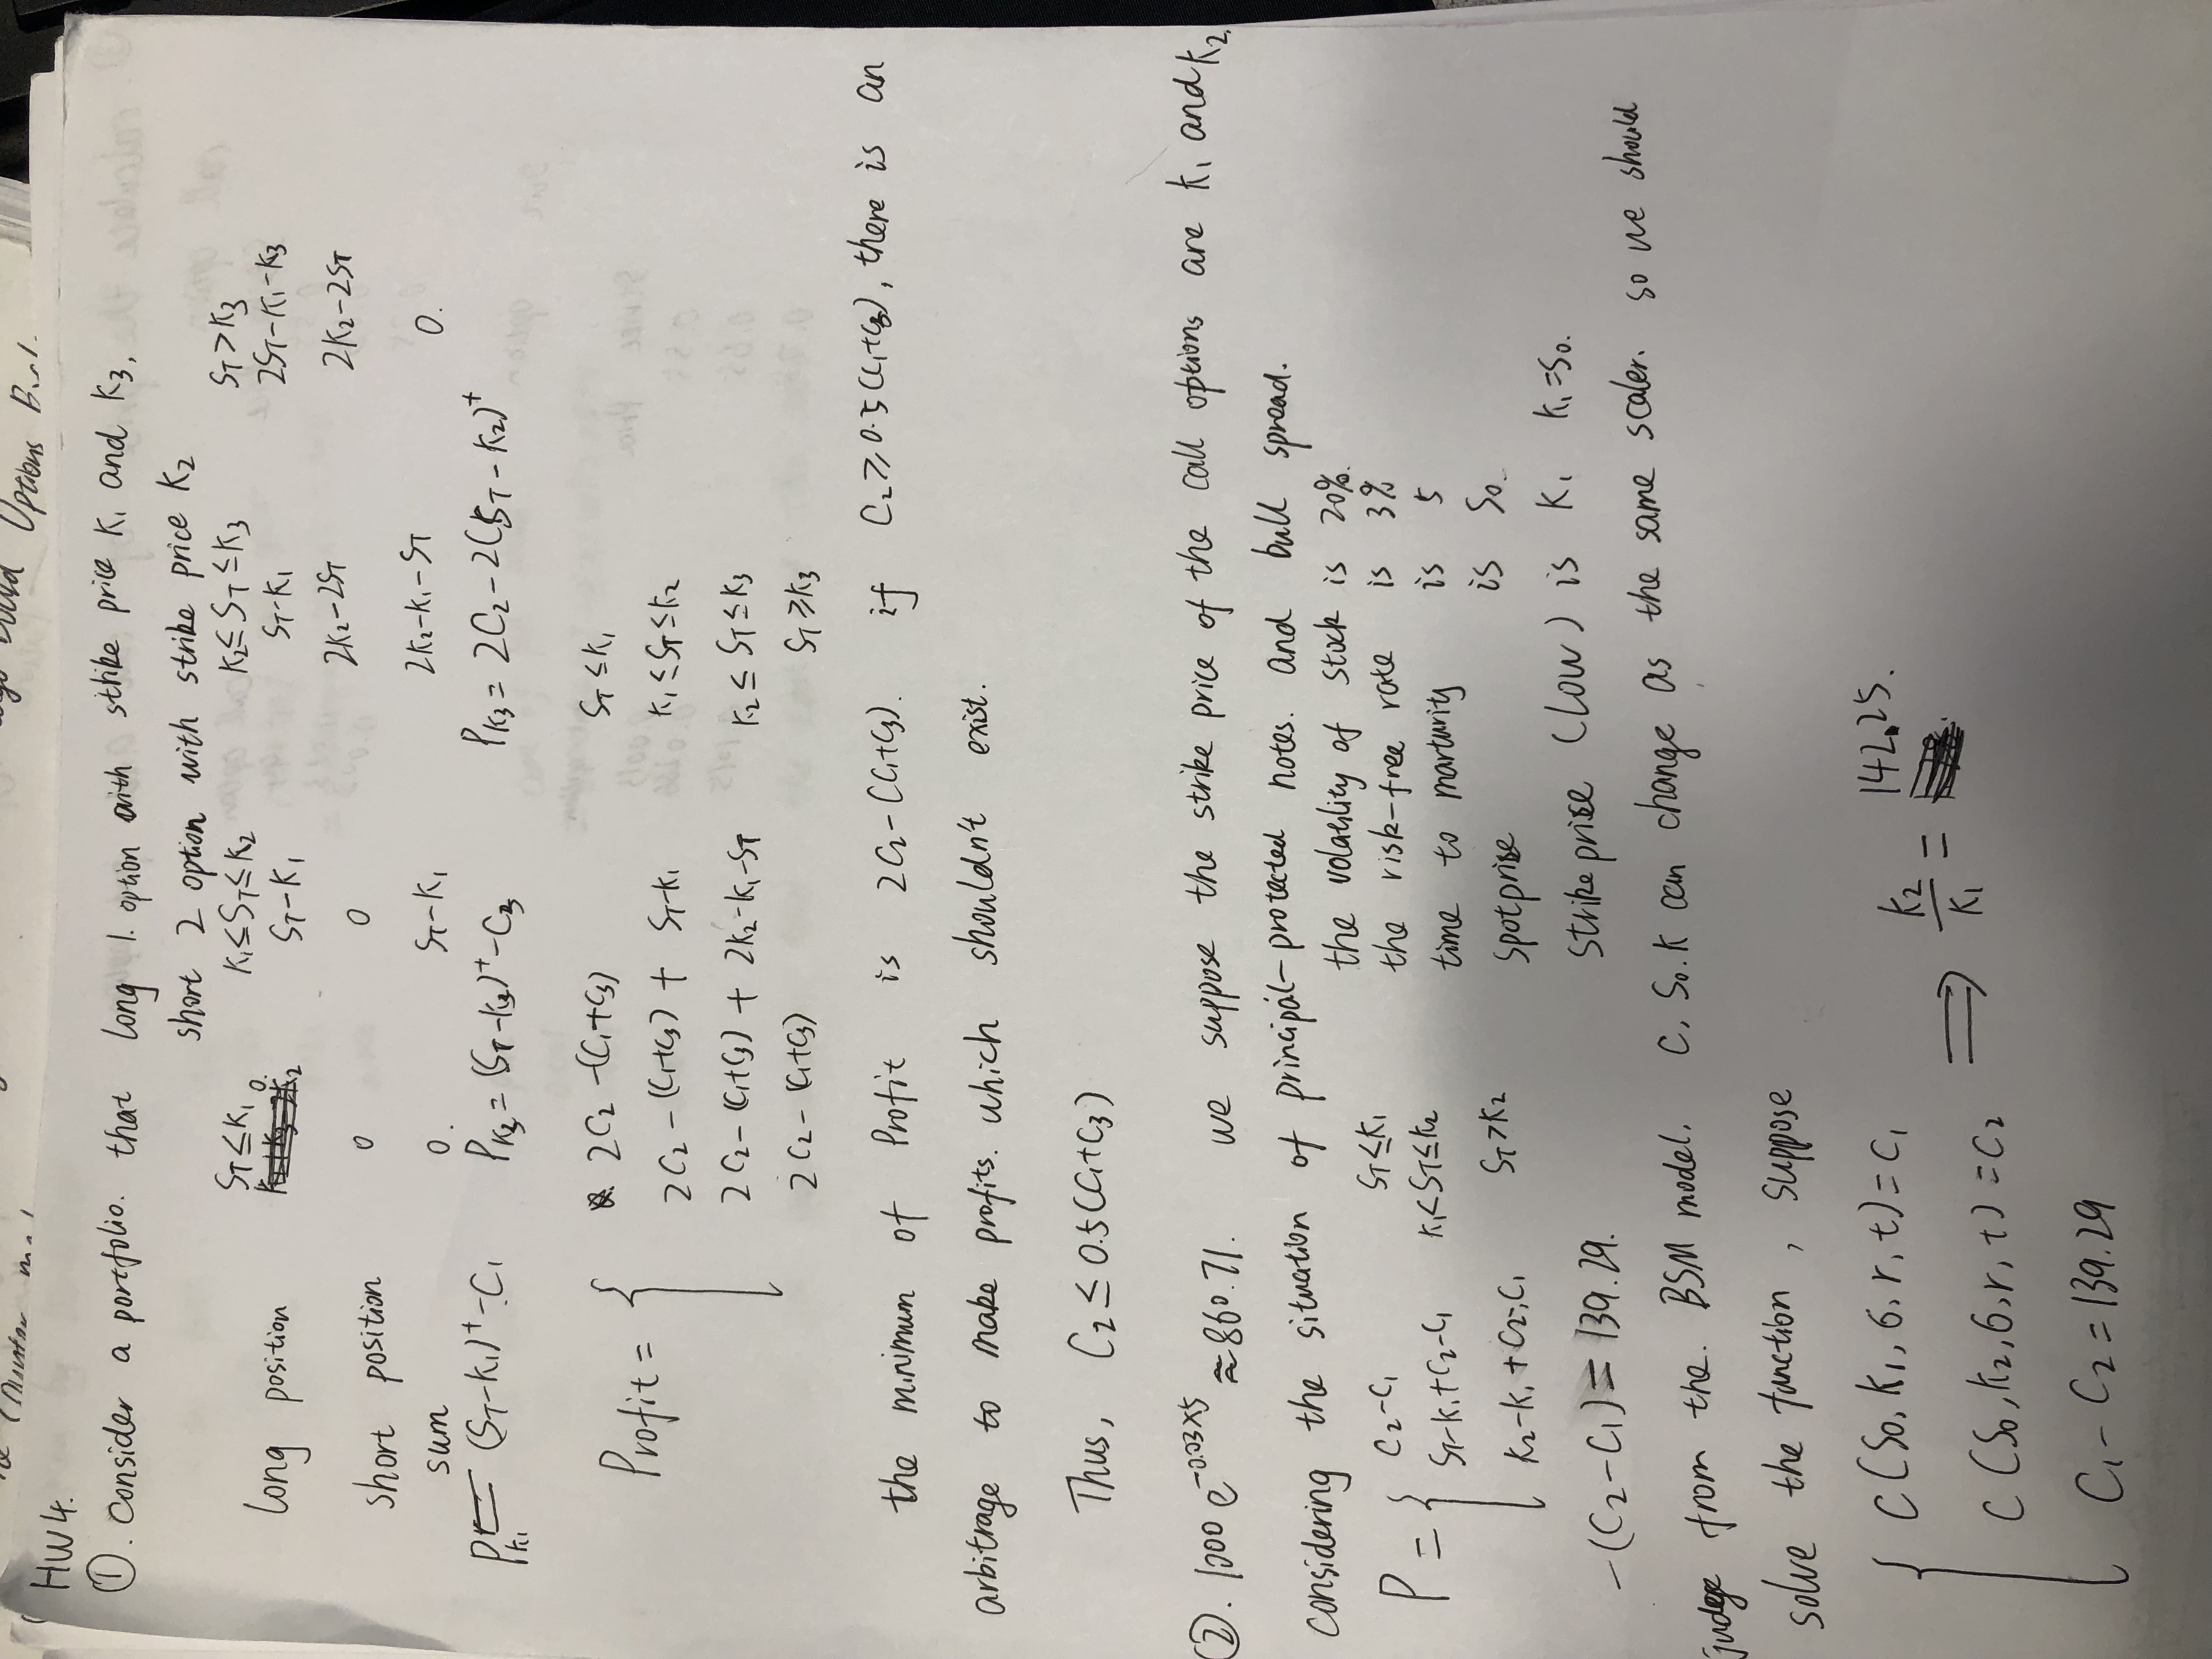 HW4.
①. Consider a portfolio. that long 1. option with strike price K1 and K3,
short 2 option with strike price K2
ST≤K1 K1≤ST≤K2 K2≤ST≤K3 ST>K3
long position 0. ST-K1 ST-K1 2ST-K1-K3
short position 0 0 2K2-2ST 2K2-2ST
sum 0. ST-K1 2K2-K1-ST 0.
PK1 = (ST-K1)+-C1 PK3=(ST-K3)+-C3 PK3=2C2-2(ST-K2)+
Profit = { 2C2-(C1+C3) ST≤K1
2C2-(C1+C3)+ ST-K1 K1≤ST≤K2
2C2-(C1+C3)+2K2-K1-ST K2≤ST≤K3
2C2-(C1+C3) ST≥K3
the minimum of Profit is 2C2-(C1+C3). if C2≥0.5(C1+C3), there is an
arbitrage to make profits. which shouldn't exist.
Thus, C2≤0.5(C1+C3)
②. 1000 e^-0.03×5 ≈860.71. we suppose the strike price of the call options are K1 and K2,
considering the situation of principal-protected notes. and bull spread.
P = { C2-C1 ST≤K1
ST-K1+C2-C1 K1<ST≤K2
K2-K1+C2-C1 ST>K2
the volatility of stock is 20%.
the risk-free rate is 3%
time to marturity is 5
spotprise is S0.
strikeprise (low) is K1 K1=S0.
-(C2-C1)=139.29.
judge from the. BSM model. C, S0.K can change as the same scaler. so we should
solve the function, suppose
{ C(S0,K1,σ,r,t)=C1
C(S0,K2,σ,r,t)=C2
C1-C2=139.29
⟹ K2/K1 = 142.25.